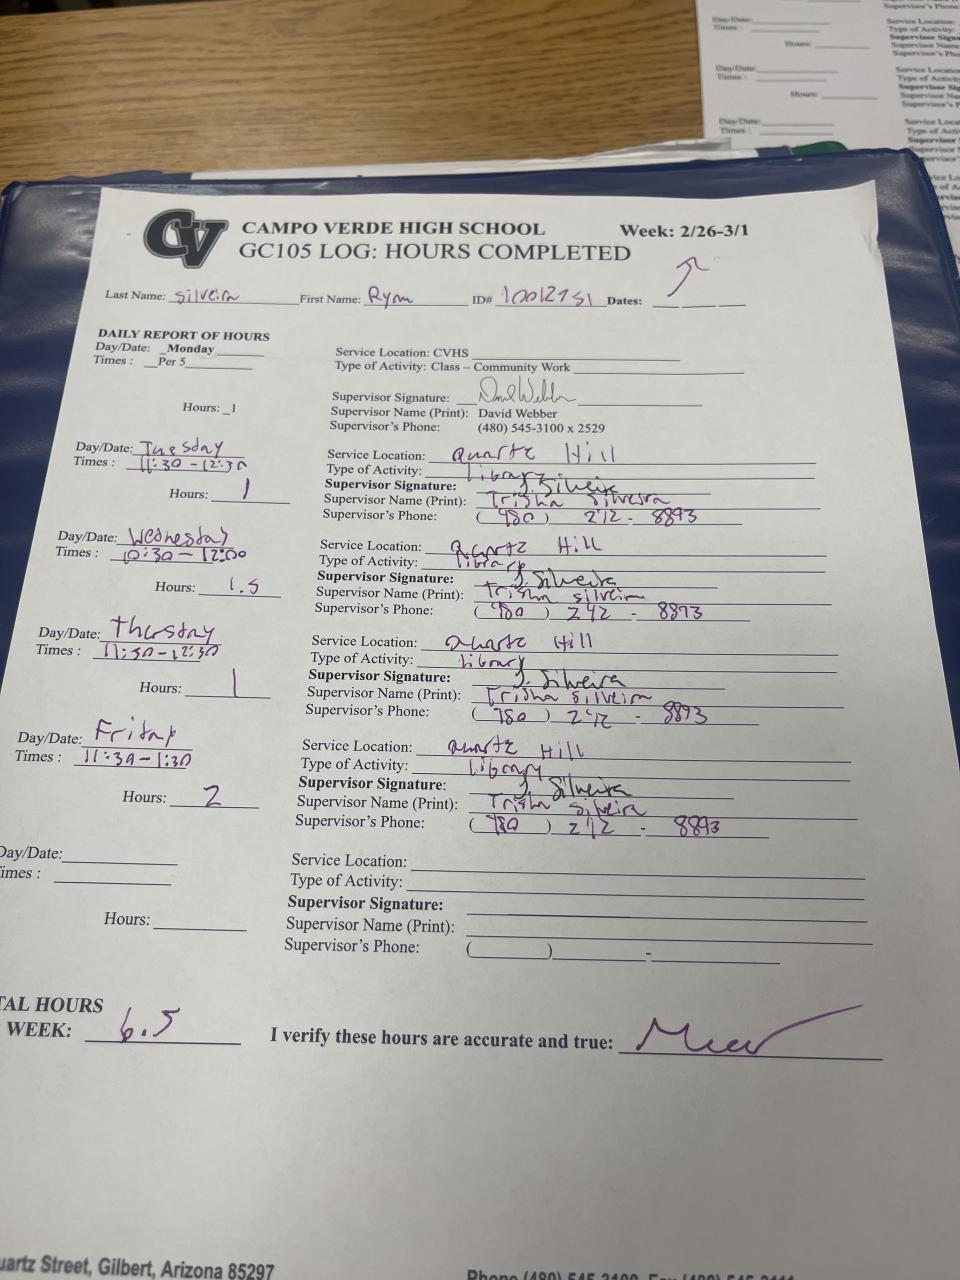 CV
CAMPO VERDE HIGH SCHOOL Week: 2/26-3/1
GC105 LOG: HOURS COMPLETED
Last Name: Silveira First Name: Ryan ID# Dates:
DAILY REPORT OF HOURS
Day/Date: Monday
Times : Per 5
Hours: 1
Service Location: CVHS
Type of Activity: Class – Community Work
Supervisor Signature: David Webber
Supervisor Name (Print): David Webber
Supervisor's Phone: (480) 545-3100 x 2529
Day/Date: Tuesday
Times : 11:30 - 12:30
Hours: 1
Service Location: Quartz Hill
Type of Activity: Library
Supervisor Signature: T. Silveira
Supervisor Name (Print): Trisha Silveira
Supervisor's Phone: (480) 242 - 8893
Day/Date: Wednesday
Times : 10:30 - 12:00
Hours: 1.5
Service Location: Quartz Hill
Type of Activity: Library
Supervisor Signature: T. Silveira
Supervisor Name (Print): Trisha Silveira
Supervisor's Phone: (480) 242 - 8893
Day/Date: Thursday
Times : 11:30 - 12:30
Hours: 1
Service Location: Quartz Hill
Type of Activity: Library
Supervisor Signature: T. Silveira
Supervisor Name (Print): Trisha Silveira
Supervisor's Phone: (480) 242 - 8893
Day/Date: Friday
Times : 11:30 - 1:30
Hours: 2
Service Location: Quartz Hill
Type of Activity: Library
Supervisor Signature: T. Silveira
Supervisor Name (Print): Trisha Silveira
Supervisor's Phone: (480) 242 - 8893
Day/Date:
Times :
Hours:
Service Location:
Type of Activity:
Supervisor Signature:
Supervisor Name (Print):
Supervisor's Phone: ( ) -
TAL HOURS
WEEK: 6.5 I verify these hours are accurate and true:
uartz Street, Gilbert, Arizona 85297